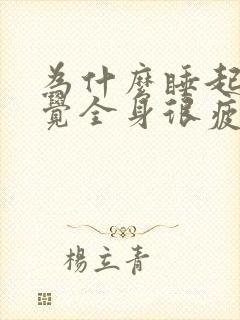 為什麼睡起
覺全身很疲
楊立青